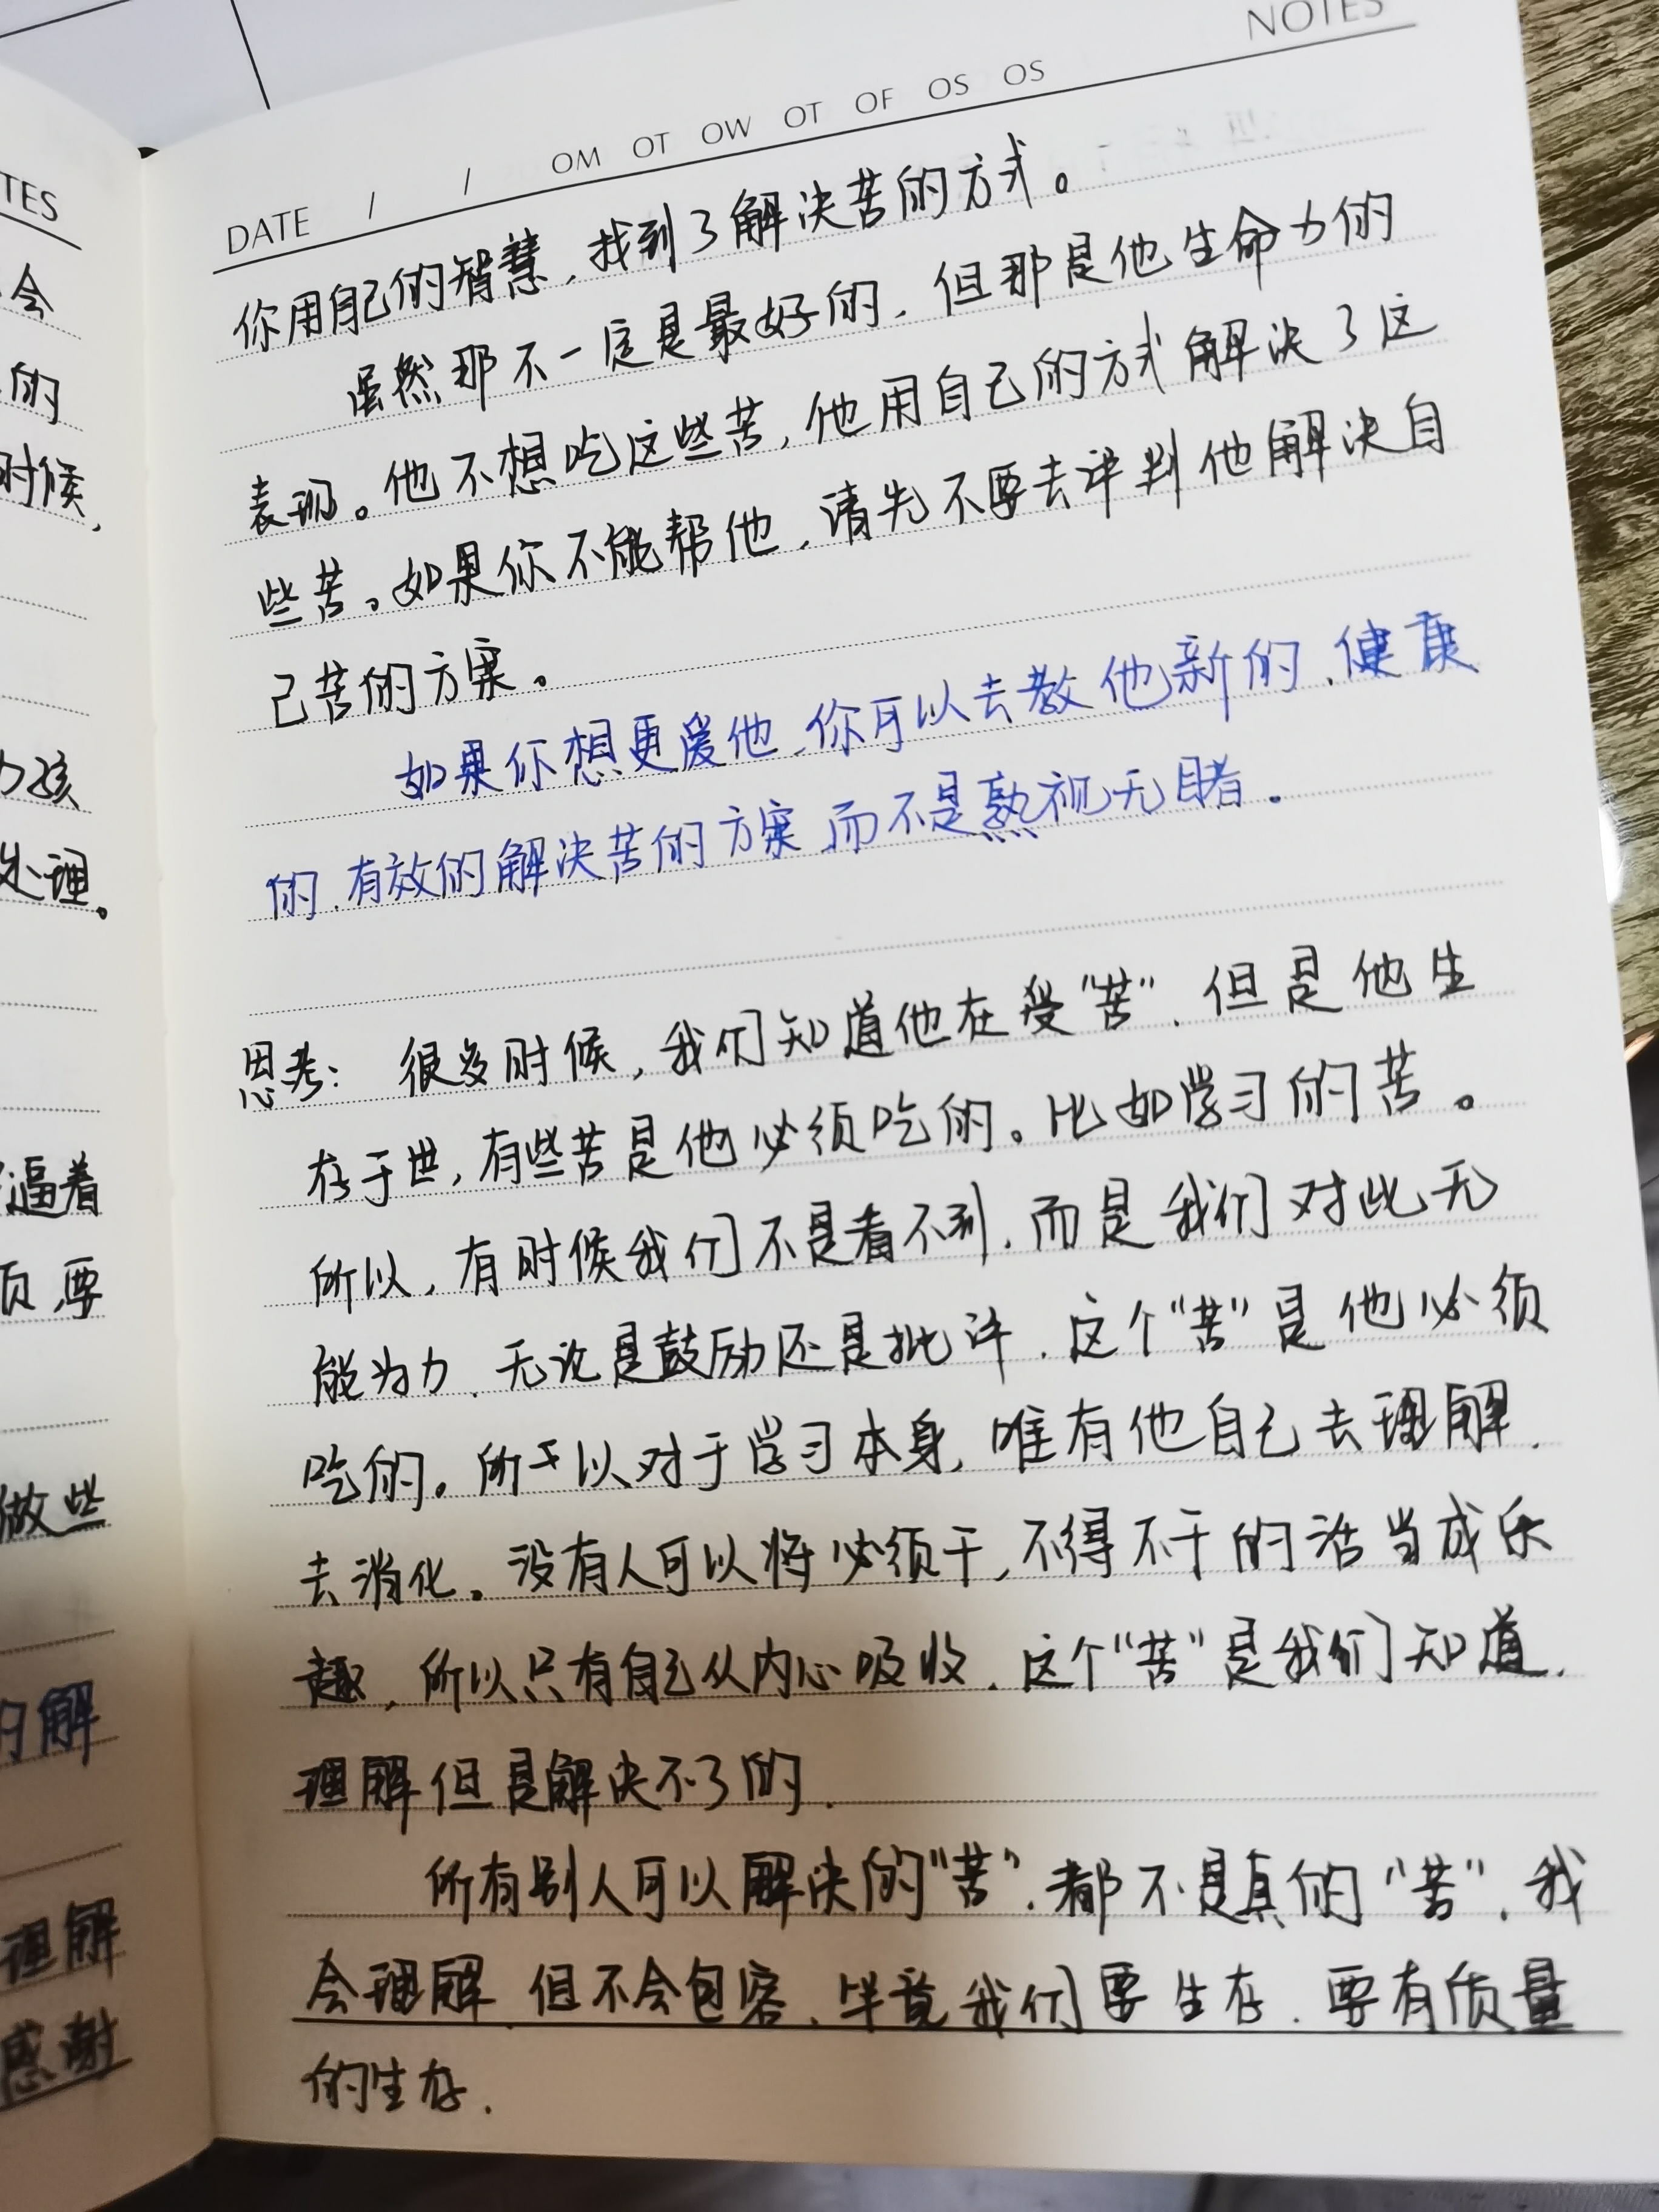 TES
会
的
时候,
力孩
处理。
逼着
页,要
做些
的解
理解
感谢
NOTES
DATE / / OM OT OW OT OF OS OS
你用自己的智慧,找到了解决苦的方式。
虽然那不一定是最好的,但那是他生命力的
表现。他不想吃这些苦,他用自己的方式解决了这
些苦。如果你不能帮他,请先不要去评判他解决自
己苦的方案。
如果你想更爱他,你可以去教他新的、健康
的、有效的解决苦的方案,而不是熟视无睹.
思考: 很多时候,我们知道他在受"苦",但是他生
存于世,有些苦是他必须吃的。比如学习的苦。
所以,有时候我们不是看不到,而是我们对此无
能为力,无论是鼓励还是批评,这个"苦"是他必须
吃的。所于以对于学习本身,唯有他自己去理解,
去消化。没有人可以将必须干,不得不干的活当成乐
趣,所以只有自己从内心吸收,这个"苦"是我们知道,
理解但是解决不了的.
所有别人可以解决的"苦",都不是真的"苦",我
会理解,但不会包容,毕竟我们要生存,要有质量
的生存.